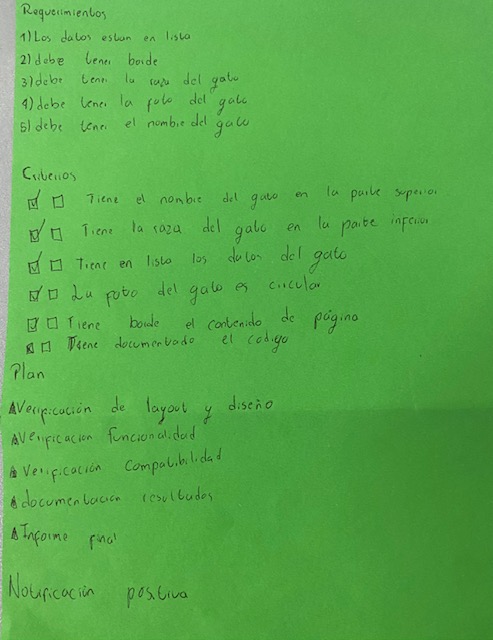 Requerimientos
1) Los datos estan en lista
2) debe tener borde
3) debe tener la raza del gato
4) debe tener la foto del gato
5) debe tener el nombre del gato
Criterios
Tiene el nombre del gato en la parte superior
Tiene la raza del gato en la parte inferior
Tiene en lista los datos del gato
La foto del gato es circular
Tiene borde el contenido de página
Tiene documentado el codigo
Plan
Verificación de layout y diseño
Verificacion funcionalidad
Verificación Compatibilidad
documentacion resultados
Informe final
Notificación positiva